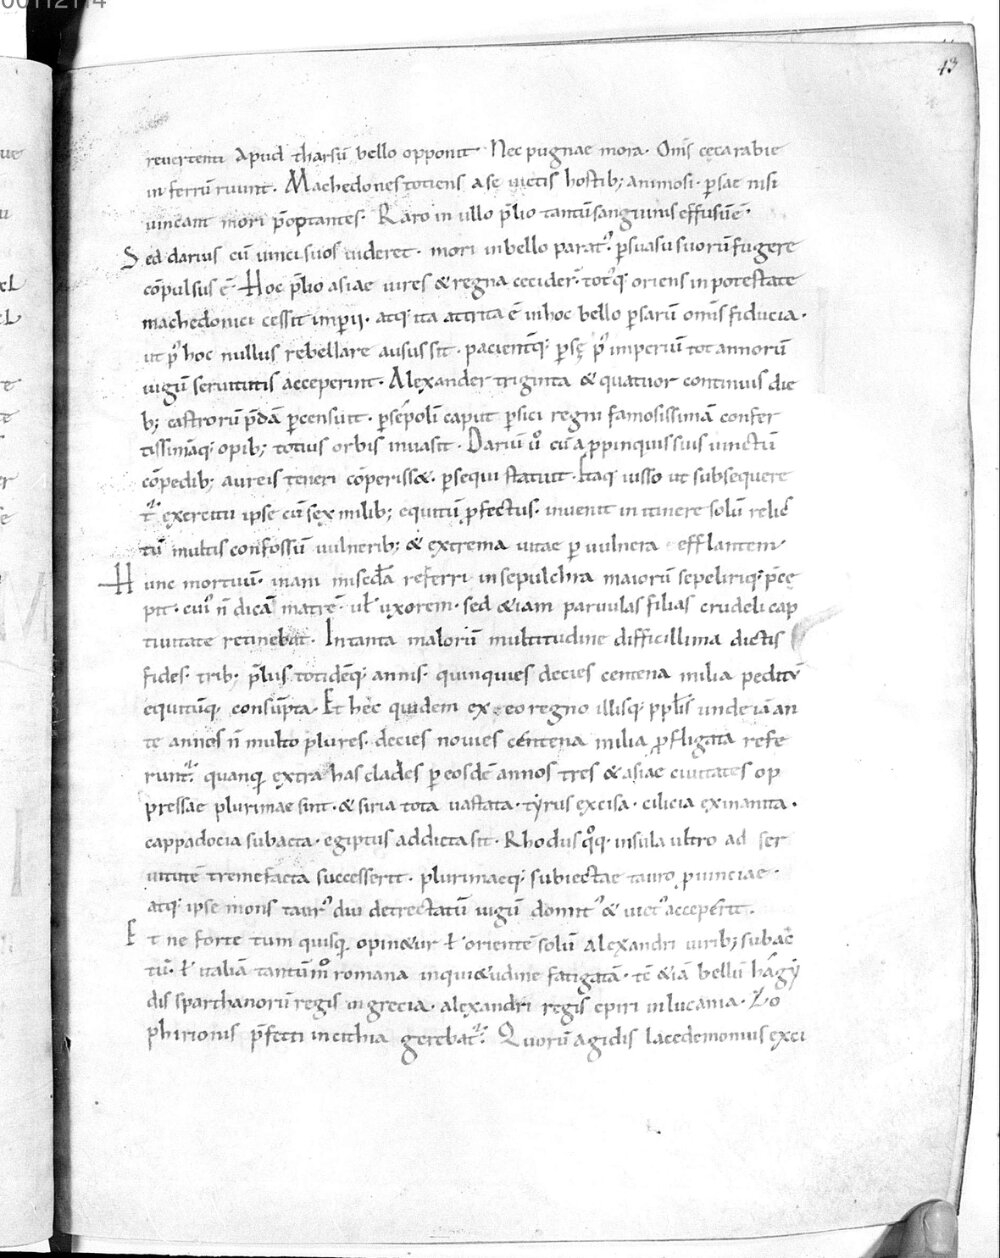 43
reuertenti apud tharsū bello opponit· Nec pugnae mora· Om̄s cęca rabie
in ferrū ruunt· Machedones totiens a se uictis hostib; animosi· p̱sae nisi
uincant mori p̄optantes· Raro in ullo p̄lio tantū sanguinis effusū ē·
Sed darius cū uinci suos uideret· mori in bello parat᾽, p̱suasu suorū fugere
cōpulsus ē· Hoc p̄lio asiae uires & regna cecider̄· tot᾽q; oriens in potestate
machedonici cessit imp̱ii· atq; ita attrita ē in hoc bello p̱sarū om̄is fiducia·
ut p᾽ hoc nullus rebellare ausus sit· pacient̄q; p̱sę p᾽ imperiū tot annorū
iugū seruitutis acceperint· Alexander triginta & quatuor continuis die
b; castrorū p̄dā p̱censuit· p̱sepoli caput p̱sici regni famosissimā confer
tissimāq; opib; totius orbis inuasit· Dariū ů cū a ppinquis suis uinctū
cōpedib; aureis teneri cōperiss&· p̱sequi statuit· Itaq; iusso ut subsequere
t᾽ exercitu ipse cū sex milib; equitū p̱fectus· inuenit in itinere solū relic
tū multis confossū uulnerib; & extrema uitae p̱ uulnera efflantem
Hunc mortuū· inani miscd̄ia referri in sepulchra maiorū sepeliriq; p̄cę
pit· cui᾽ n̄ dicā matrē· uł uxorem· sed &iam paruulas filias crudeli cap
tiuitate retinebat· In tanta malorū multitudine difficillima dictis
fides· trib; p̄liis totidēq; annis· quinquies decies centena milia peditū
equitūq; consūpta· Et hęc quidem ex eo regno illisq; pp̄lis unde iā an
te annos n̄ multo plures· decies nouies centena milia p̱fligata refe
runt᾽· quanq; extra has clades p̱ eosdē annos tres & asiae ciuitates op
pressae plurimae sint· & siria tota uastata· tyrus excisa· cilicia exinanita·
cappadocia subacta· egiptus addicta sit· Rhodus q̊q; insula ultro ad ser
uitutē tremefacta successerit· plurimaeq; subiectae tauro p̱uinciae·
atq; ipse mons taur᾽ diu detrectatū iugū domit᾽ & uict᾽ acceperit·
Et ne forte tum quisq; opin&ur ł orientē solū alexandri uirib; subac
tū· ł italiā tantūm̊ romana inqui&udine fatigatā· tē &iā bellū hagy
dis sparthanorū regis in grecia· alexandri regis epiri in lucania· Zo
phirionis p̄fecti in cithia gerebat᾽· Quorū agidis lacedemonius exci